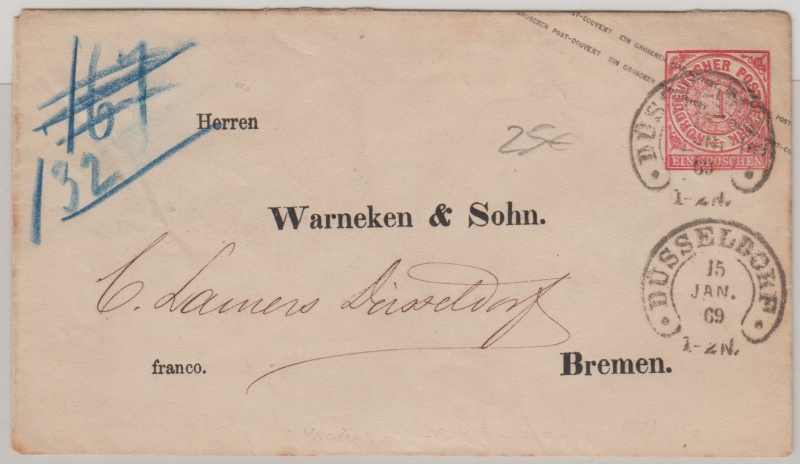 EIN GROSCHEN POST-COUVERT EIN GROSCHEN
GROSCHEN POST-COUVERT EIN GROSCHEN
NORDDEUTSCHER POSTBEZIRK
1
EIN GROSCHEN
69
1-2N.
167
132
Herren
25€
Warneken & Sohn.
DÜSSELDORF
15
JAN.
69
1-2N.
C. Lamers Düsseldorf
franco.
Bremen.